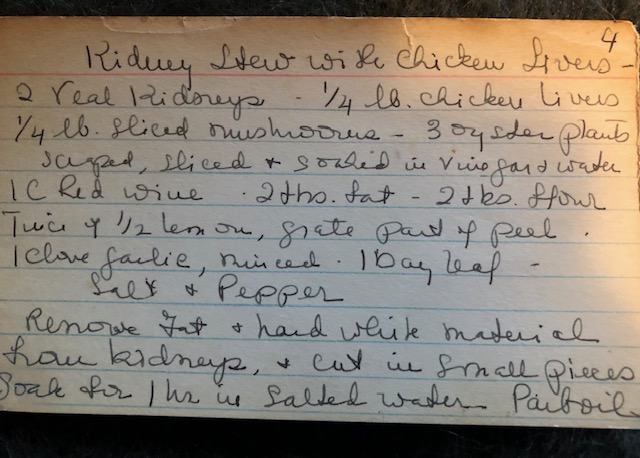 4
Kidney Stew with Chicken Livers -
2 Veal Kidneys - 1/4 lb. chicken livers
1/4 lb. sliced mushrooms - 3 oyster plants
scraped, sliced & soaked in vinegar & water
1 C Red wine . 2 tbs. fat - 2 tbs. flour
Juice of 1/2 lemon, grate part of peel .
1 clove garlic, minced . 1 Bay leaf -
Salt & Pepper
Remove Fat & hard white material
from kidneys, & cut in small pieces
Soak for 1 hr in salted water Parboil